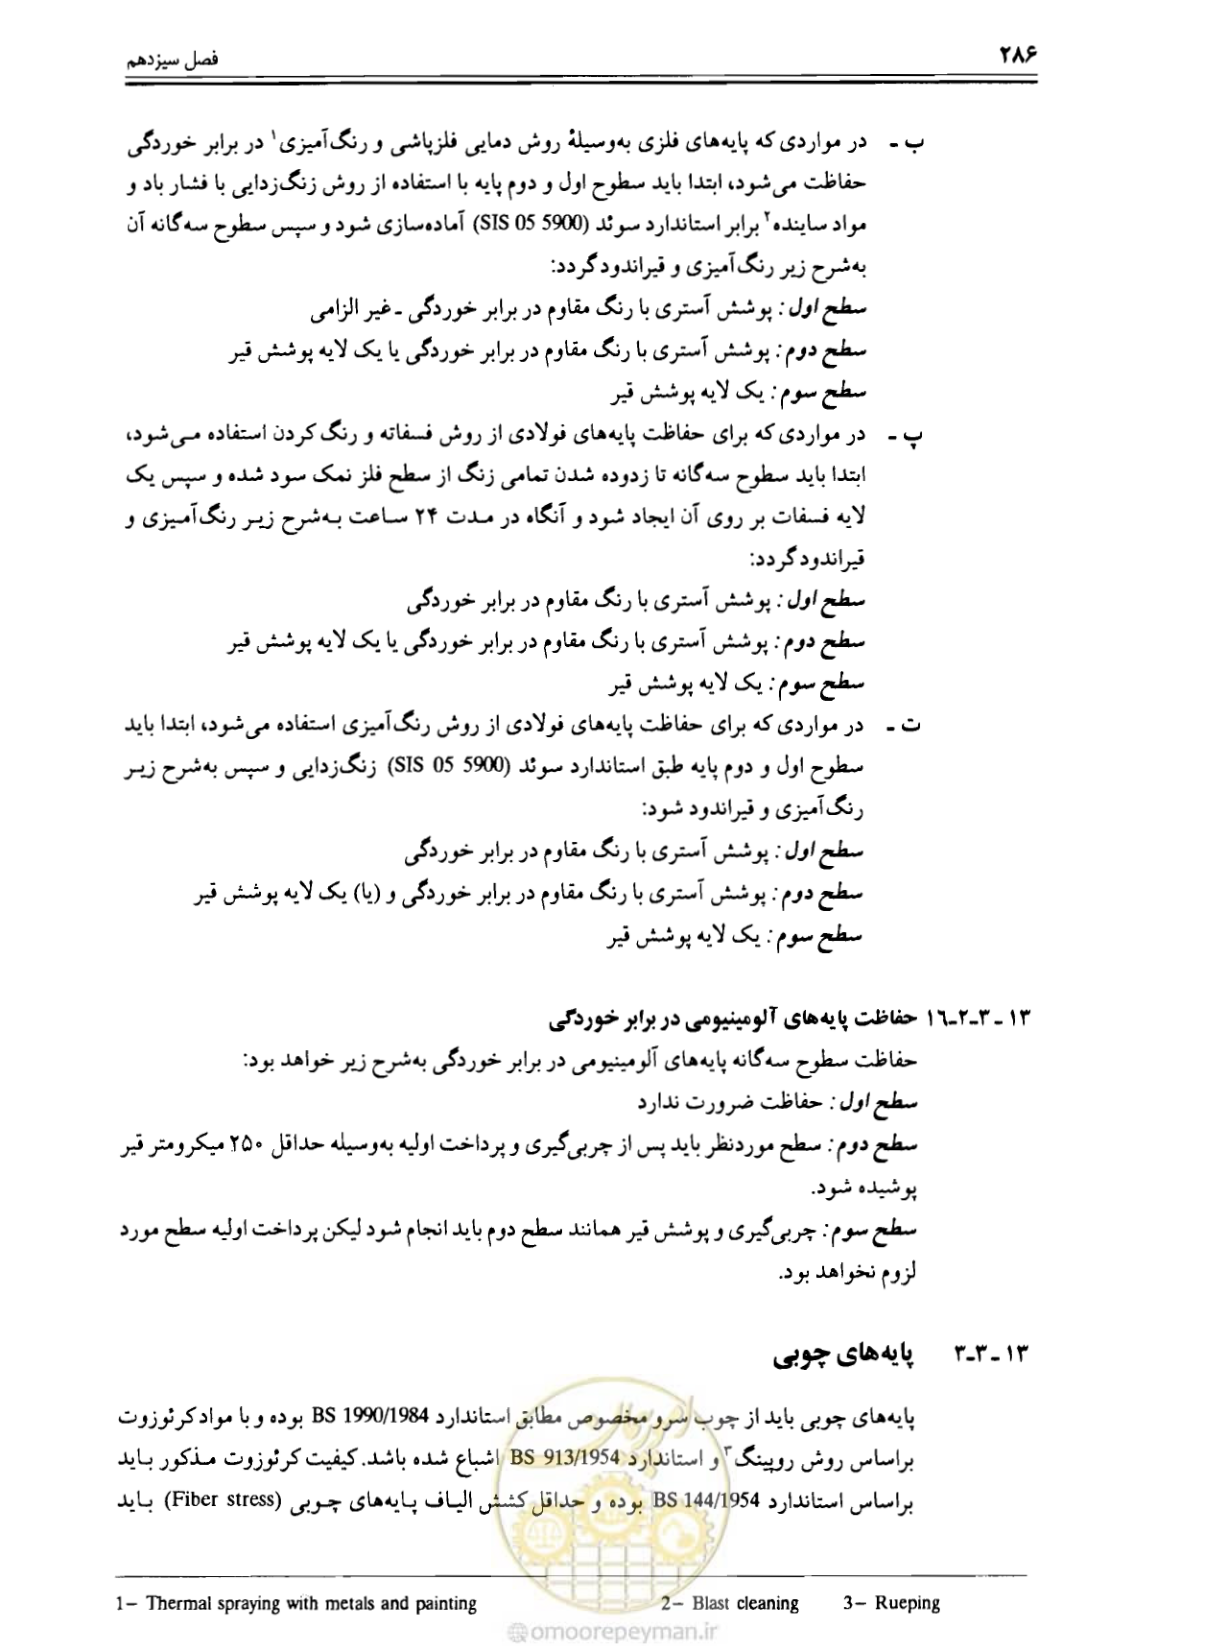 ۲۸۶ فصل سیزدهم
ب ـ در مواردی که پایه‌های فلزی به‌وسیلهٔ روش دمایی فلزپاشی و رنگ‌آمیزی۱ در برابر خوردگی
حفاظت می‌شود، ابتدا باید سطوح اول و دوم پایه با استفاده از روش زنگ‌زدایی با فشار باد و
مواد ساینده۲ برابر استاندارد سوئد (SIS 05 5900) آماده‌سازی شود و سپس سطوح سه‌گانه آن
به‌شرح زیر رنگ‌آمیزی و قیراندود گردد:
سطح اول: پوشش آستری با رنگ مقاوم در برابر خوردگی ـ غیر الزامی
سطح دوم: پوشش آستری با رنگ مقاوم در برابر خوردگی یا یک لایه پوشش قیر
سطح سوم: یک لایه پوشش قیر
پ ـ در مواردی که برای حفاظت پایه‌های فولادی از روش فسفاته و رنگ کردن استفاده می‌شود،
ابتدا باید سطوح سه‌گانه تا زدوده شدن تمامی زنگ از سطح فلز نمک سود شده و سپس یک
لایه فسفات بر روی آن ایجاد شود و آنگاه در مدت ۲۴ ساعت به‌شرح زیر رنگ‌آمیزی و
قیراندود گردد:
سطح اول: پوشش آستری با رنگ مقاوم در برابر خوردگی
سطح دوم: پوشش آستری با رنگ مقاوم در برابر خوردگی یا یک لایه پوشش قیر
سطح سوم: یک لایه پوشش قیر
ت ـ در مواردی که برای حفاظت پایه‌های فولادی از روش رنگ‌آمیزی استفاده می‌شود، ابتدا باید
سطوح اول و دوم پایه طبق استاندارد سوئد (SIS 05 5900) زنگ‌زدایی و سپس به‌شرح زیر
رنگ‌آمیزی و قیراندود شود:
سطح اول: پوشش آستری با رنگ مقاوم در برابر خوردگی
سطح دوم: پوشش آستری با رنگ مقاوم در برابر خوردگی و (یا) یک لایه پوشش قیر
سطح سوم: یک لایه پوشش قیر
۱۳ـ۳ـ۲ـ۱۶ حفاظت پایه‌های آلومینیومی در برابر خوردگی
حفاظت سطوح سه‌گانه پایه‌های آلومینیومی در برابر خوردگی به‌شرح زیر خواهد بود:
سطح اول: حفاظت ضرورت ندارد
سطح دوم: سطح موردنظر باید پس از چربی‌گیری و پرداخت اولیه به‌وسیله حداقل ۲۵۰ میکرومتر قیر
پوشیده شود.
سطح سوم: چربی‌گیری و پوشش قیر همانند سطح دوم باید انجام شود لیکن پرداخت اولیه سطح مورد
لزوم نخواهد بود.
۱۳ـ۳ـ۳ پایه‌های چوبی
پایه‌های چوبی باید از چوب سرو مخصوص مطابق استاندارد BS 1990/1984 بوده و با مواد کرئوزوت
براساس روش روپینگ۳ و استاندارد BS 913/1954 اشباع شده باشد. کیفیت کرئوزوت مذکور باید
براساس استاندارد BS 144/1954 بوده و حداقل کشش الیاف پایه‌های چوبی (Fiber stress) باید
1– Thermal spraying with metals and painting 2– Blast cleaning 3– Rueping
@omoorepeyman.ir